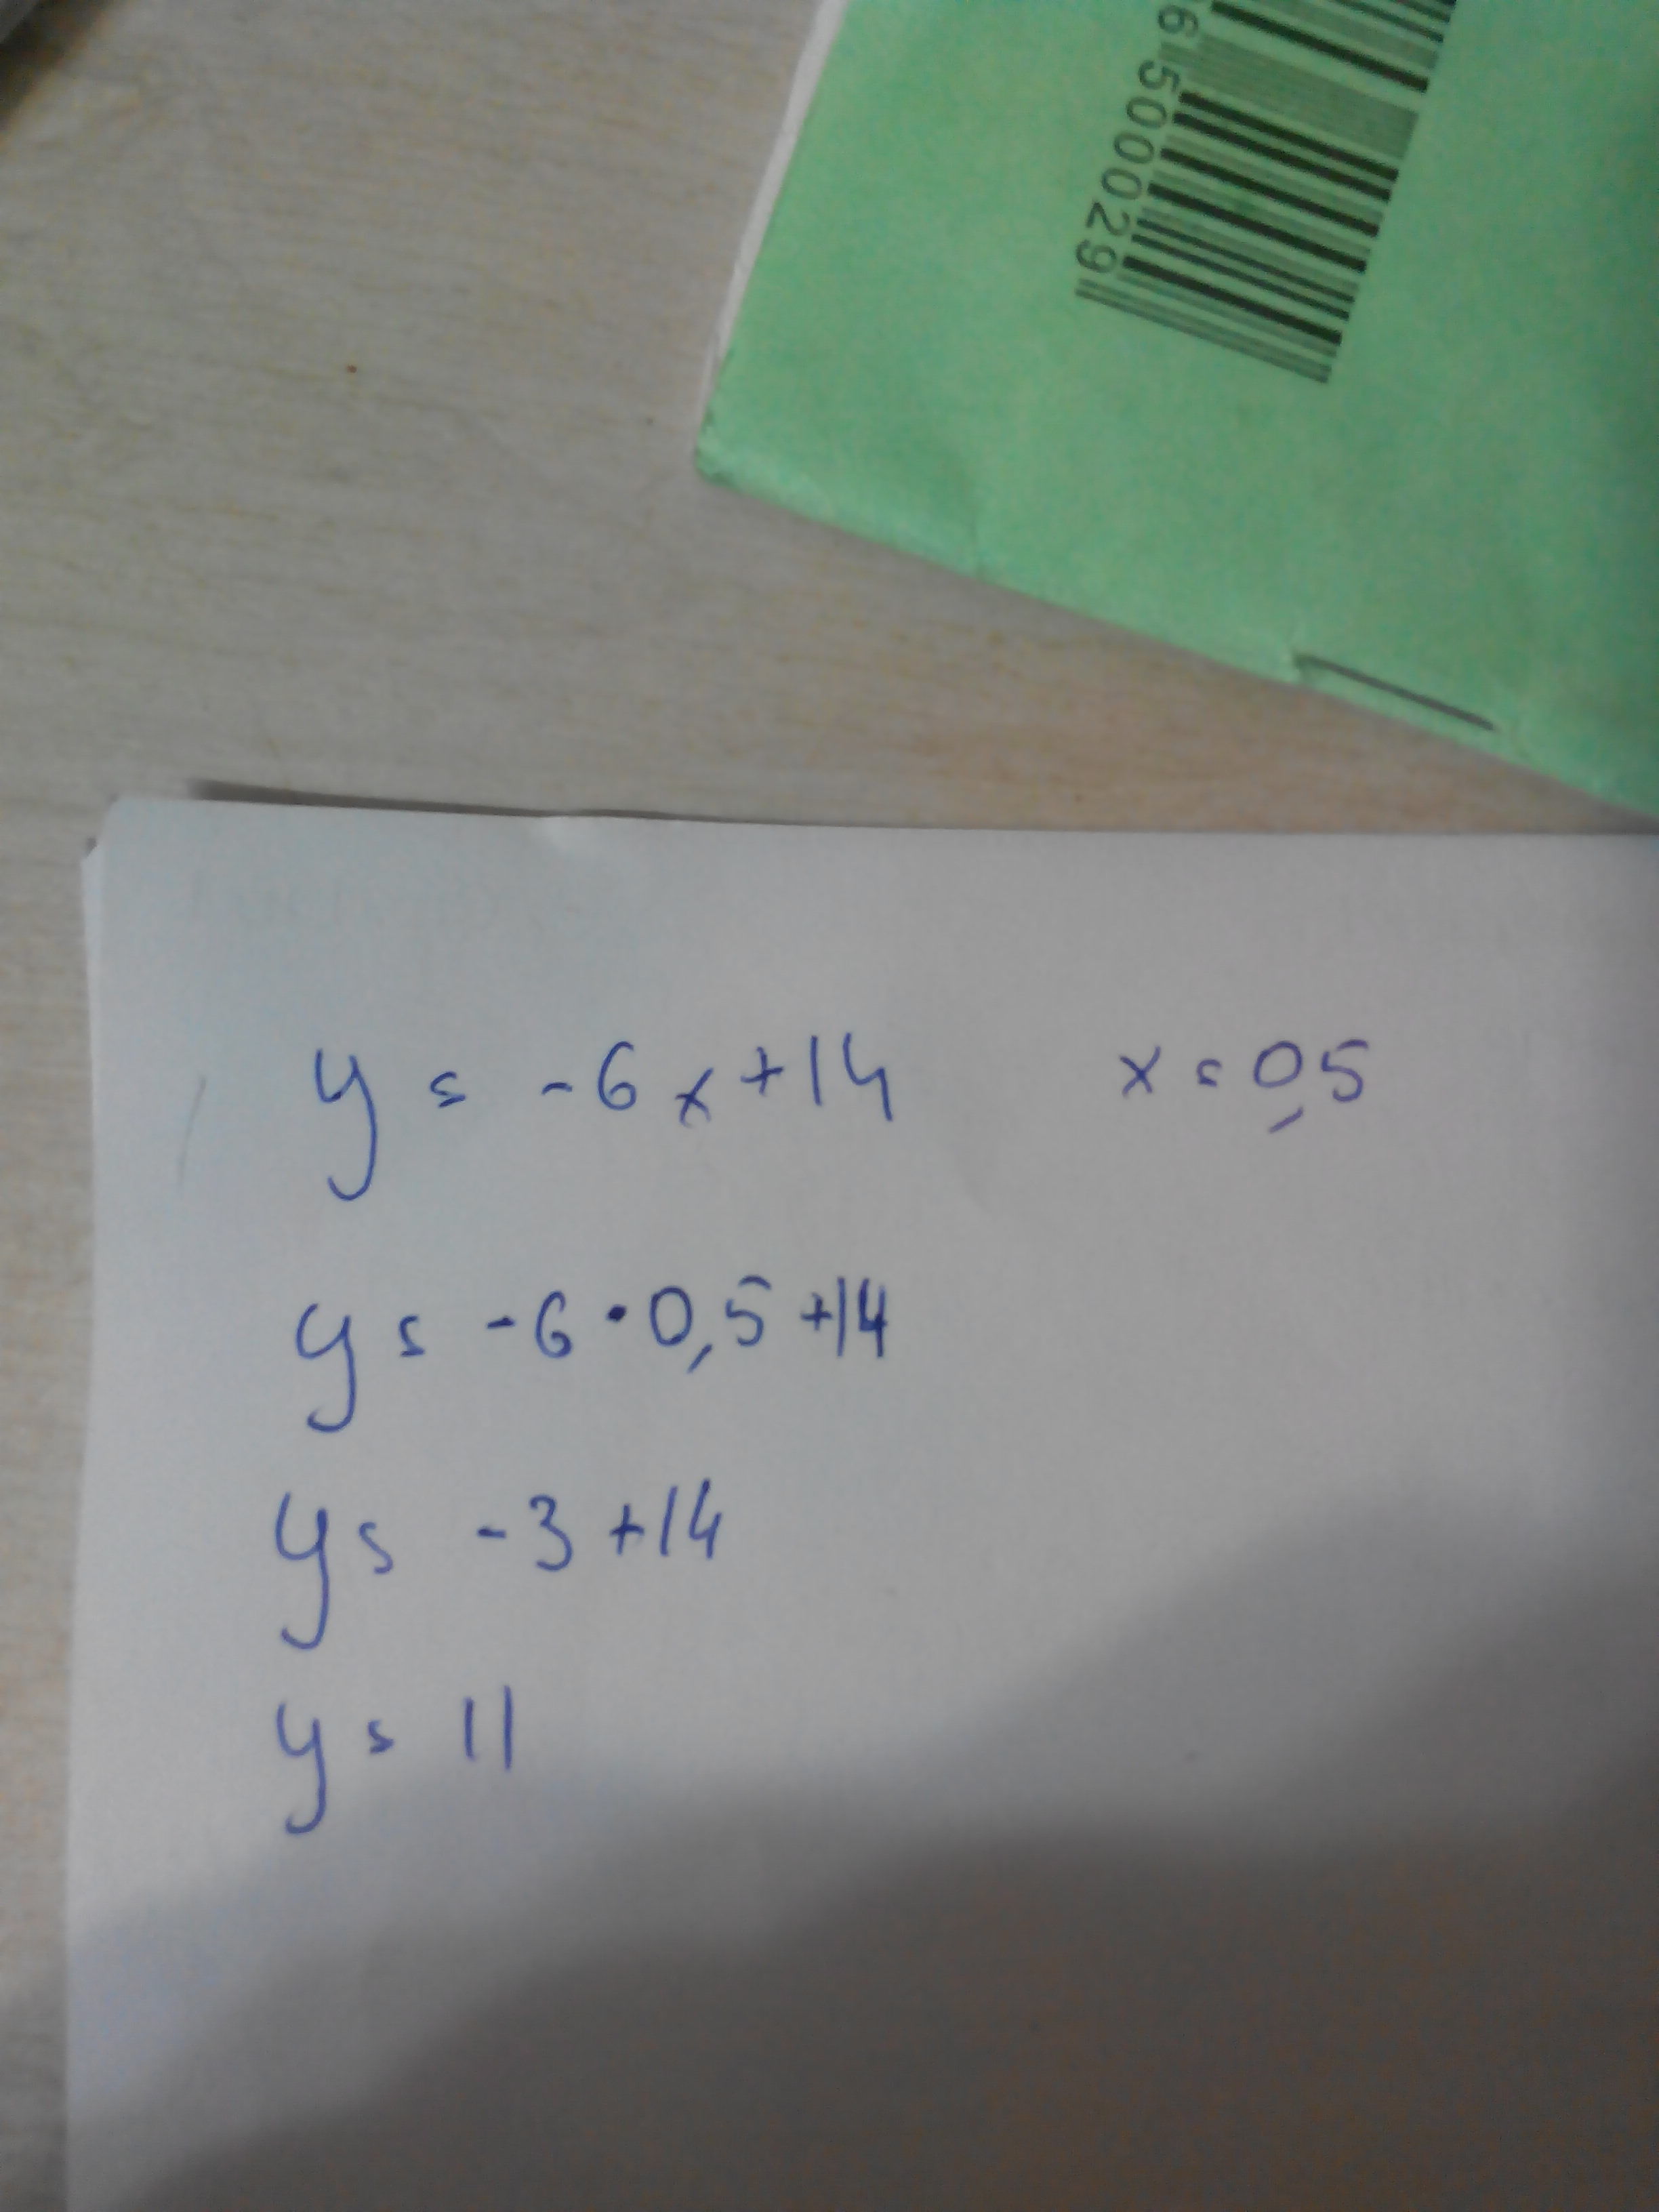 6 500029
y = -6x+14 x = 0,5
y = -6·0,5+14
y = -3+14
y = 11